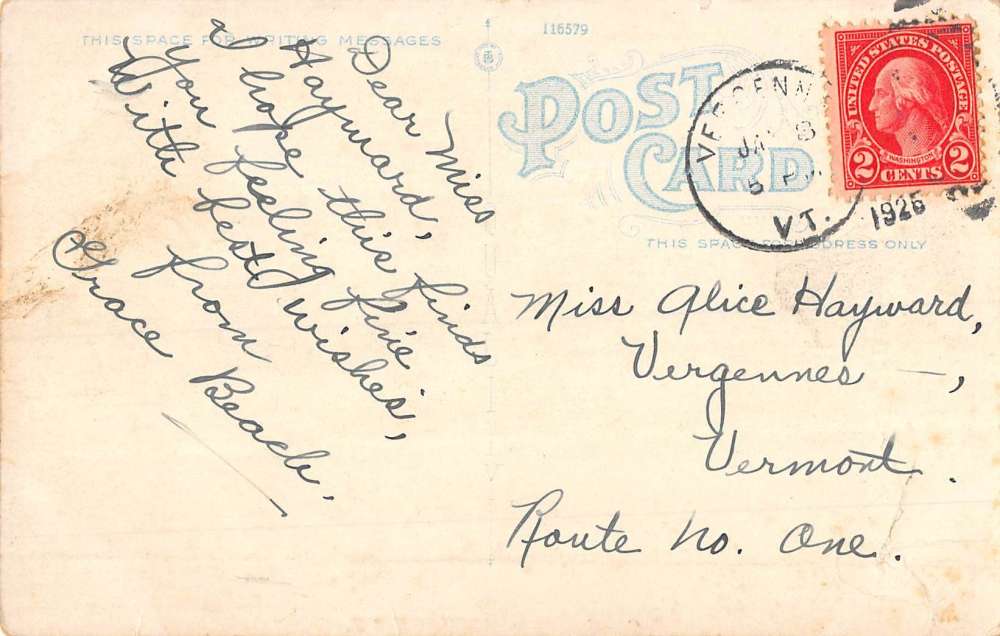 THIS SPACE FOR WRITING MESSAGES
Dear Miss
Hayward,
I hope this finds
you feeling fine
With best wishes,
from
Grace Beach.
116579
POST
CARD
THIS SPACE FOR ADDRESS ONLY
VERGENN
JAN 8
5 P
1926
VT.
UNITED STATES POSTAGE
WASHINGTON
2 CENTS 2
Miss Alice Hayward,
Vergennes –,
Vermont.
Route No. One.